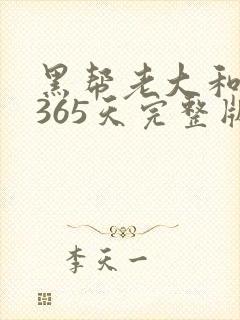 黑帮老大和
365天完整版
李天一